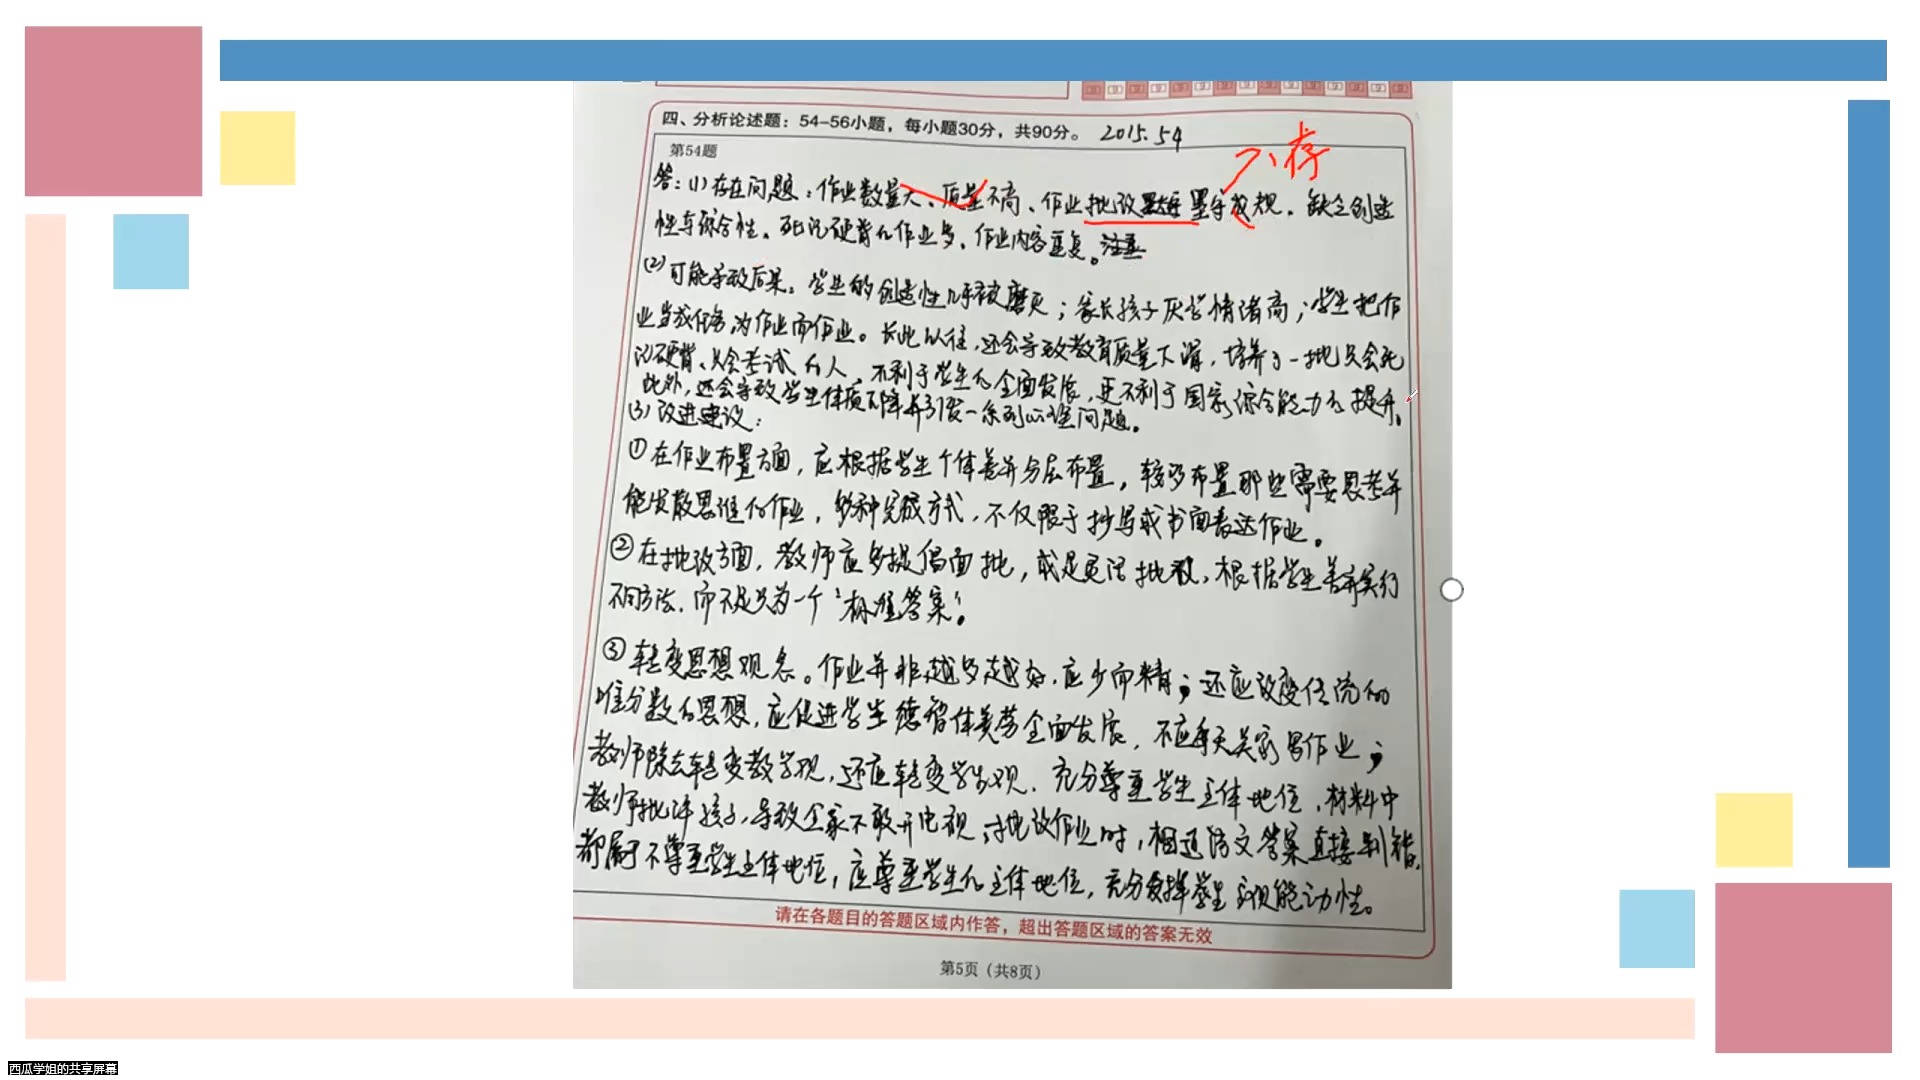 四、分析论述题：54-56小题，每小题30分，共90分。 2015.54
第54题
答：(1)存在问题：作业数量大、质量不高、作业批改墨守成规。缺乏创造
性与综合性、死记硬背的作业多、作业内容重复。
(2)可能导致后果：学生的创造性几乎被磨灭；家长孩子厌学情绪高；学生把作
业当成任务，为作业而作业。长此以往，还会导致教育质量下滑，培养了一批只会死
记硬背、只会考试的人，不利于学生的全面发展，更不利于国家综合能力的提升。
此外，还会导致学生体质下降并引发一系列心理问题。
(3)改进建议：
①在作业布置方面，应根据学生个体差异分层布置，较多布置那些需要思考并
能发散思维的作业，多种完成方式，不仅限于抄写或书面表达作业。
②在批改方面，教师应多提倡面批，或是灵活批改，根据学生差异实行
不同方法，而不是只为一个“标准答案”。
③转变思想观念。作业并非越多越好，应少而精；还应改变传统的
唯分数的思想，应促进学生德智体美劳全面发展，不应每天关家写作业；
教师除去转变教学观，还应转变学生观，充分尊重学生主体地位，材料中
教师批评孩子，导致全家不敢开电视，批改作业时，相近语文答案直接判错，
都属于不尊重学生主体地位，应尊重学生的主体地位，充分发挥学生主观能动性。
请在各题目的答题区域内作答，超出答题区域的答案无效
第5页（共8页）
西瓜学姐的共享屏幕